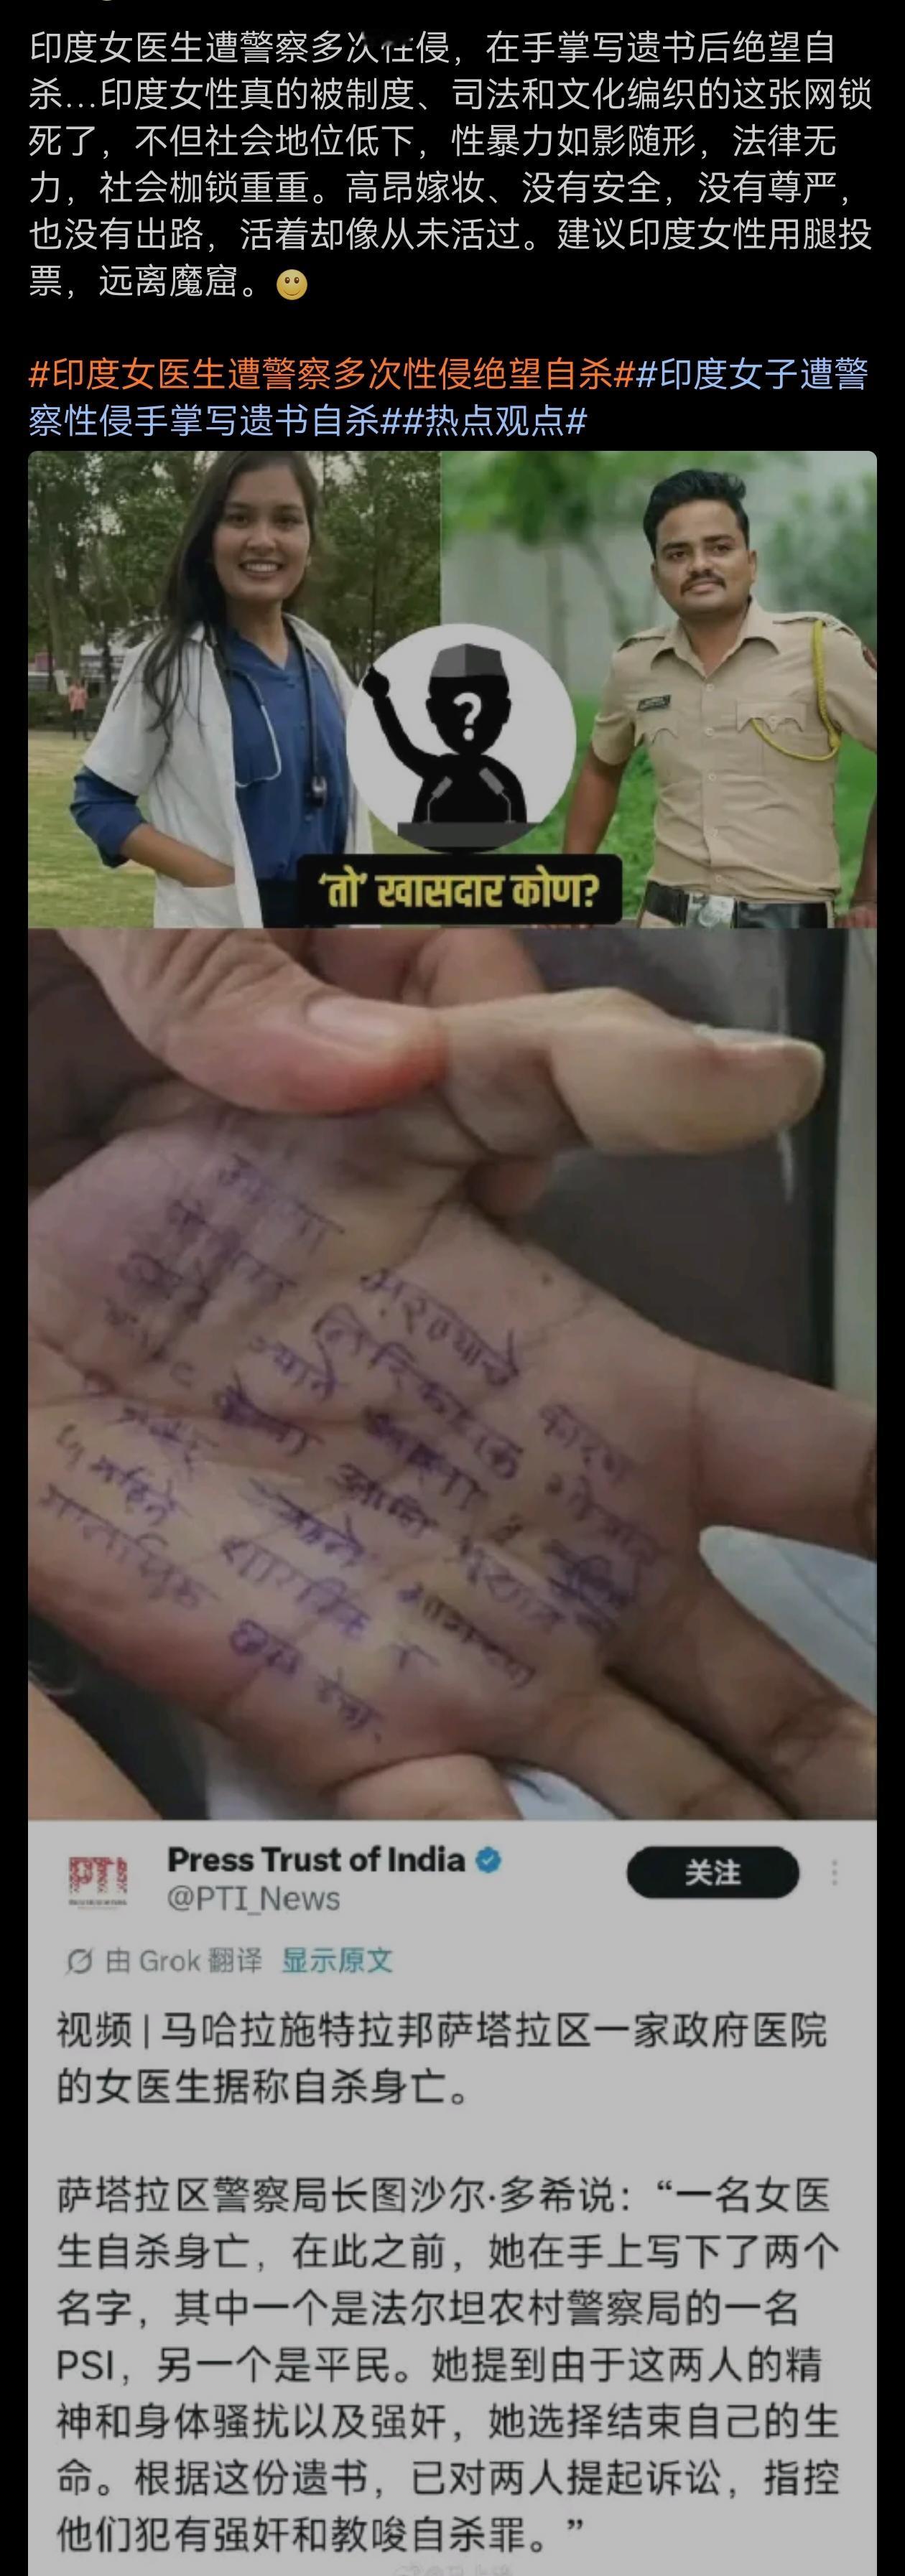 印度女医生遭警察多次性侵，在手掌写遗书后绝望自
杀…印度女性真的被制度、司法和文化编织的这张网锁
死了，不但社会地位低下，性暴力如影随形，法律无
力，社会枷锁重重。高昂嫁妆、没有安全，没有尊严，
也没有出路，活着却像从未活过。建议印度女性用腿投
票，远离魔窟。
#印度女医生遭警察多次性侵绝望自杀##印度女子遭警
察性侵手掌写遗书自杀##热点观点#
?
‘तो’ खासदार कोण?
PTI
Press Trust of India
@PTI_News
关注
由 Grok 翻译 显示原文
视频 | 马哈拉施特拉邦萨塔拉区一家政府医院
的女医生据称自杀身亡。
萨塔拉区警察局长图沙尔·多希说：“一名女医
生自杀身亡，在此之前，她在手上写下了两个
名字，其中一个是法尔坦农村警察局的一名
PSI，另一个是平民。她提到由于这两人的精
神和身体骚扰以及强奸，她选择结束自己的生
命。根据这份遗书，已对两人提起诉讼，指控
他们犯有强奸和教唆自杀罪。”